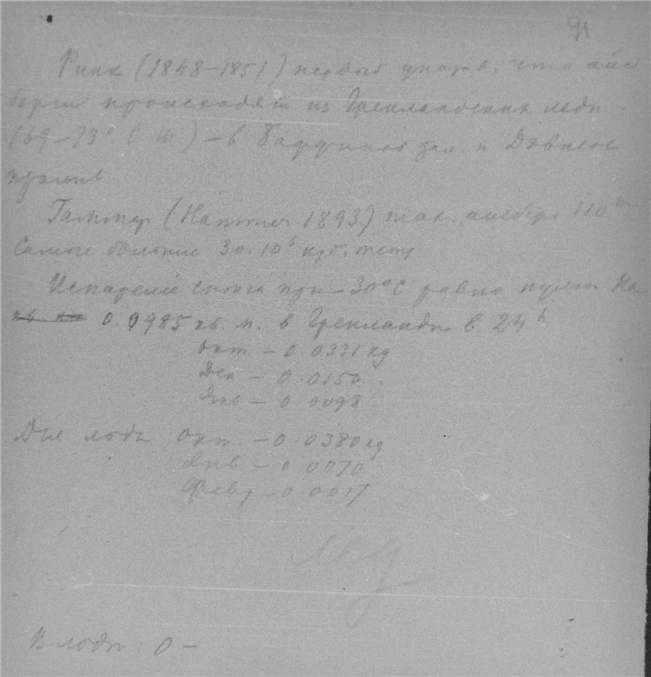 91
Ринк (1848–1851) первый указав, что айс
берги происходят из Гренландских льдов
(69–73° с. ш.) – в Баффинов зал. и Дэвисов
пролив
Гаммер (Hammer 1893) мак. айсберг 110 m.
Самые большие 30.10⁶ куб. метр
Испарение снега при –30°C равно нулю. На
0.0985 кв. м. в Гренландии в 24 h
окт. – 0.0331 кд
Дек – 0.0150
Янв – 0.0093
Для льда окт. – 0.0380 кд
Янв – 0.0070
Февр – 0.0017
В льды: 0 –